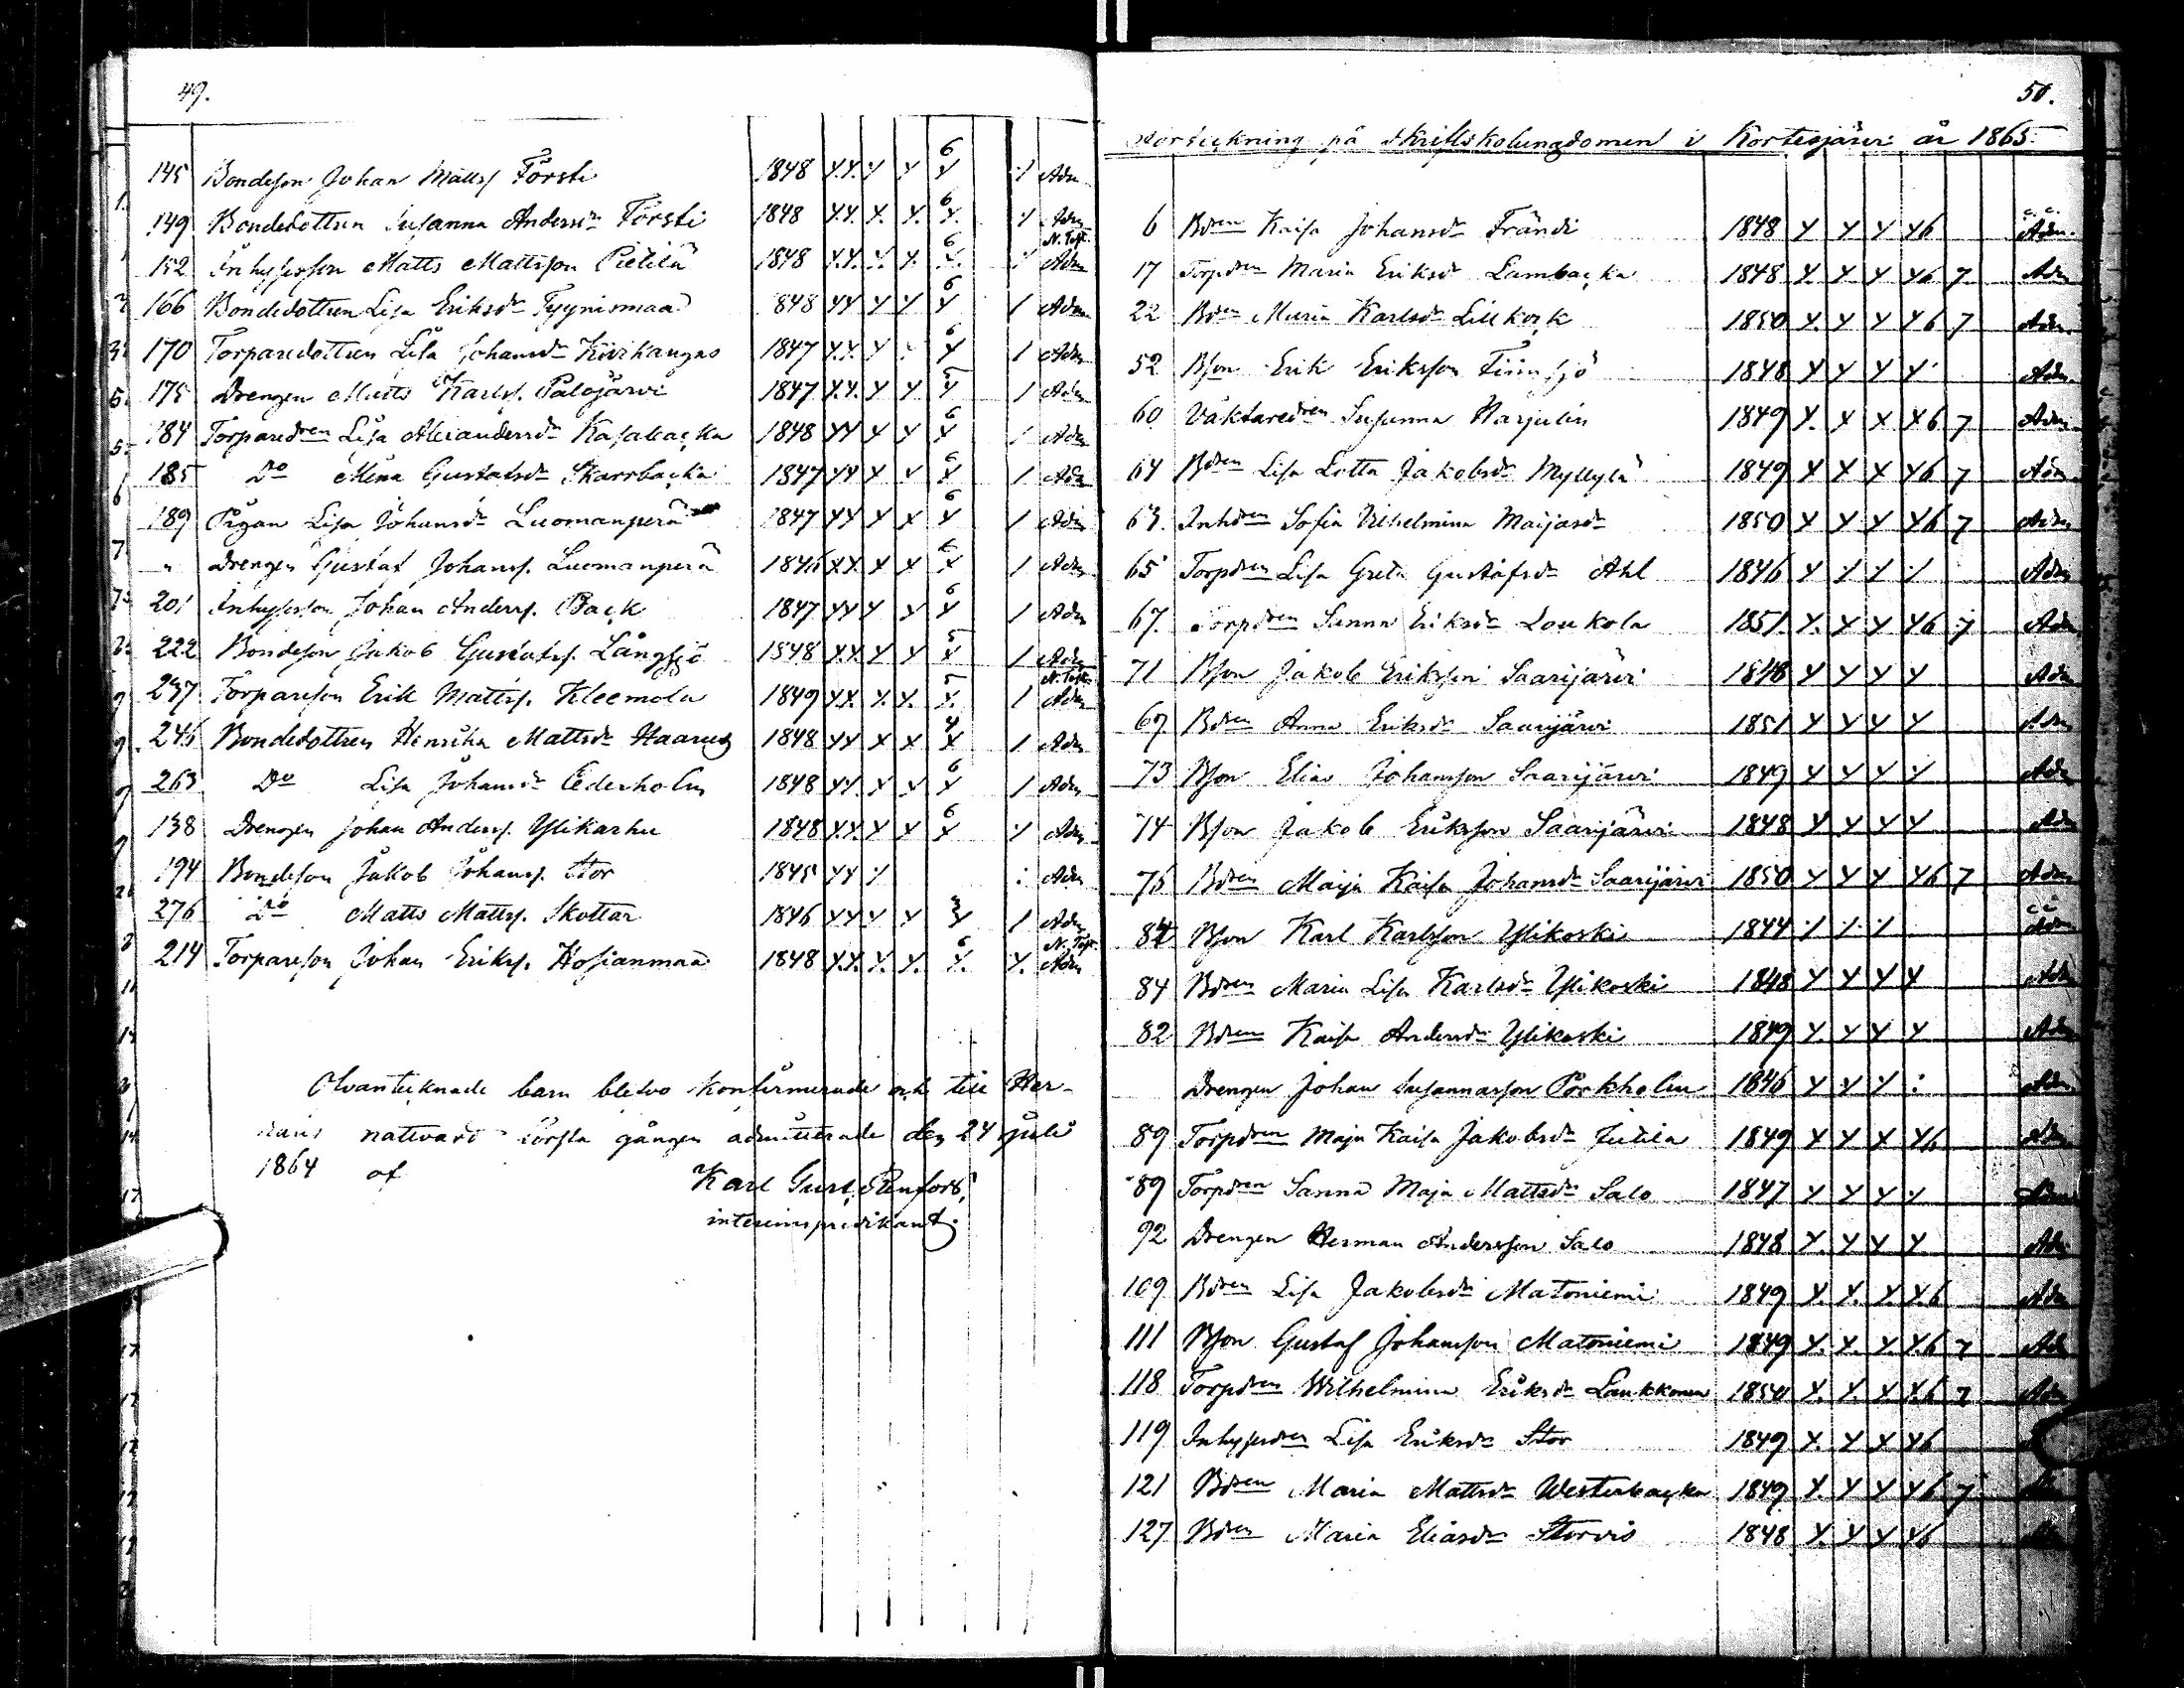 49.
145 Bondeson Johan Mattss. Försti 1848 6 Adm
149 Bondedottren Susanna Andersdr Försti 1848 6 Adm
152 Inhysesson Matts Mattsson Pietilä 1848 6 N. Test. Adm
166 Bondedottren Lisa Eriksdr Tyynismaa 1848 6 Adm
170 Torparedottren Lisa Johansdr Kivikangas 1847 6 Adm
175 Drengen Matts Karlss. Palojärvi 1847 5 Adm
184 Torparedren Lisa Alexandersdr Kasabacka 1848 6 Adm
185 Do Mina Gustafsdr Skarrbacka 1847 6 Adm
189 Pigan Lisa Johansdr Luomanperä 1847 6 Adm
" Drengen Gustaf Johanss. Luomanperä 1846 6 Adm
201 Inhysesson Johan Anderss. Back 1847 6 Adm
222 Bondeson Jakob Gustafss. Långsjö 1848 5 Adm
237 Torpareson Erik Mattss. Kleemola 1849 5 N. Test. Adm
246 Bondedottren Henrika Mattsdr 1848 4 Adm
263 Do Lisa Johansdr Cederholm 1848 6 Adm
138 Drengen Johan Anderss. Ylikarhu 1848 6 Adm
194 Bondeson Jakob Johanss. Stor 1845 Adm
276 Do Matts Mattss. Skottar 1846 3 Adm
214 Torpareson Johan Erikss. Hosianmaa 1848 6 N. Test. Adm
Ofvantecknade barn blefvo konfirmerade och till Her-
rans nattvard första gången admitterade den 24 juli
1864 af Karl Gust. Renfors,
interimspredikant.
50.
Förteckning på Skriftskolungdomen i Kortesjärvi år 1865.
6 Bdren Kaisa Johansdr Frändi 1848 6 Adm.
17 Torpdren Maria Eriksdr Lambacka 1848 6 7 Adm
22 Bdren Maria Karlsdr Lillkock 1850 6 7 Adm.
52 Bson Erik Eriksson Finnsjö 1848 Adm.
60 Vaktaredren Susanna Harjulin 1849 6 7 Adm
64 Bdren Lisa Lotta Jakobsdr Myllylä 1849 6 7 Adm
63. Inhdren Sofia Vilhelmina Maijasdr 1850 6 7 Adm
65 Torpdren Lisa Greta Gustafsdr Ahl 1846 Adm
67. Torpdren Sanna Eriksdr Loukola 1851. 6 7 Adm
71 Bson Jakob Eriksson Saarijärvi 1848 Adm
67 Bdren Anna Eriksdr Saarijärvi 1851 Adm
73 Bson Elias Johansson Saarijärvi 1849 Adm
74 Bson Jakob Eriksson Saarijärvi 1848 Adm
76 Bdren Maija Kaisa Johansdr Saarijärvi 1850 6 7 Adm
84 Bson Karl Karlsson Ylikoski 1844 Adm
84 Bdren Maria Lisa Karlsdr Ylikoski 1848 Adm
82 Bdren Kaisa Andersdr Ylikoski 1849 Adm
Drengen Johan Susannasson Porkholm 1846 Adm
89 Torpdren Maja Kaisa Jakobsdr Jutila 1849 6 Adm
89 Torpdren Sanna Maja Mattsdr Salo 1847 Adm
92 Drengen Herman Andersson Salo 1848 Adm
109 Bdren Lisa Jakobsdr Matoniemi 1849 6 Adm
111 Bson Gustaf Johansson Matoniemi 1849 6 7 Adm
118 Torpdren Wilhelmina Eriksdr Laukkonen 1850 6 7 Adm
119 Inhysesdren Lisa Eriksdr Stor 1849 6
121 Bdren Maria Mattsdr Westerbacka 1849 6 7
127 Bdren Maria Eliasdr Storvis 1848 6